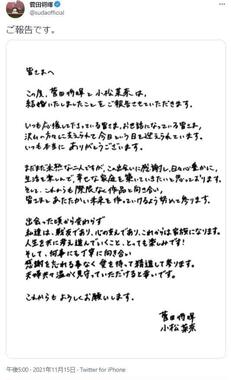 菅田将暉
@sudaofficial
ご報告です。
皆さまへ
この度、菅田将暉と小松菜奈は、
結婚いたしましたことをご報告させていただきます。
いつも応援して下さっている皆さま、お世話になっている皆さま、
沢山の方々に支えられて今日という日を迎えられています。
いつも本当にありがとうございます。
まだまだ未熟な二人ですが、この出会いに感謝し、日々心豊かに、
生活を楽しんで、幸せな家庭を築いていきたいと思っております。
そして、これからも際限なく作品と向き合い、
皆さまとあたたかい未来を作っていけるよう努めて参ります。
出会った頃から変わらず
私達は、戦友であり、心の友であり、これからは家族になります。
人生を共に考え進んでいくこと、とっても楽しみです!
そして、何事にも丁寧に向き合い
感謝を忘れる事なく愛を持って精進して参ります。
夫婦共々温かく見守っていただけると幸いです。
これからもよろしくお願いします。
菅田将暉
小松菜奈
午後5:00 · 2021年11月15日 · Twitter for iPhone